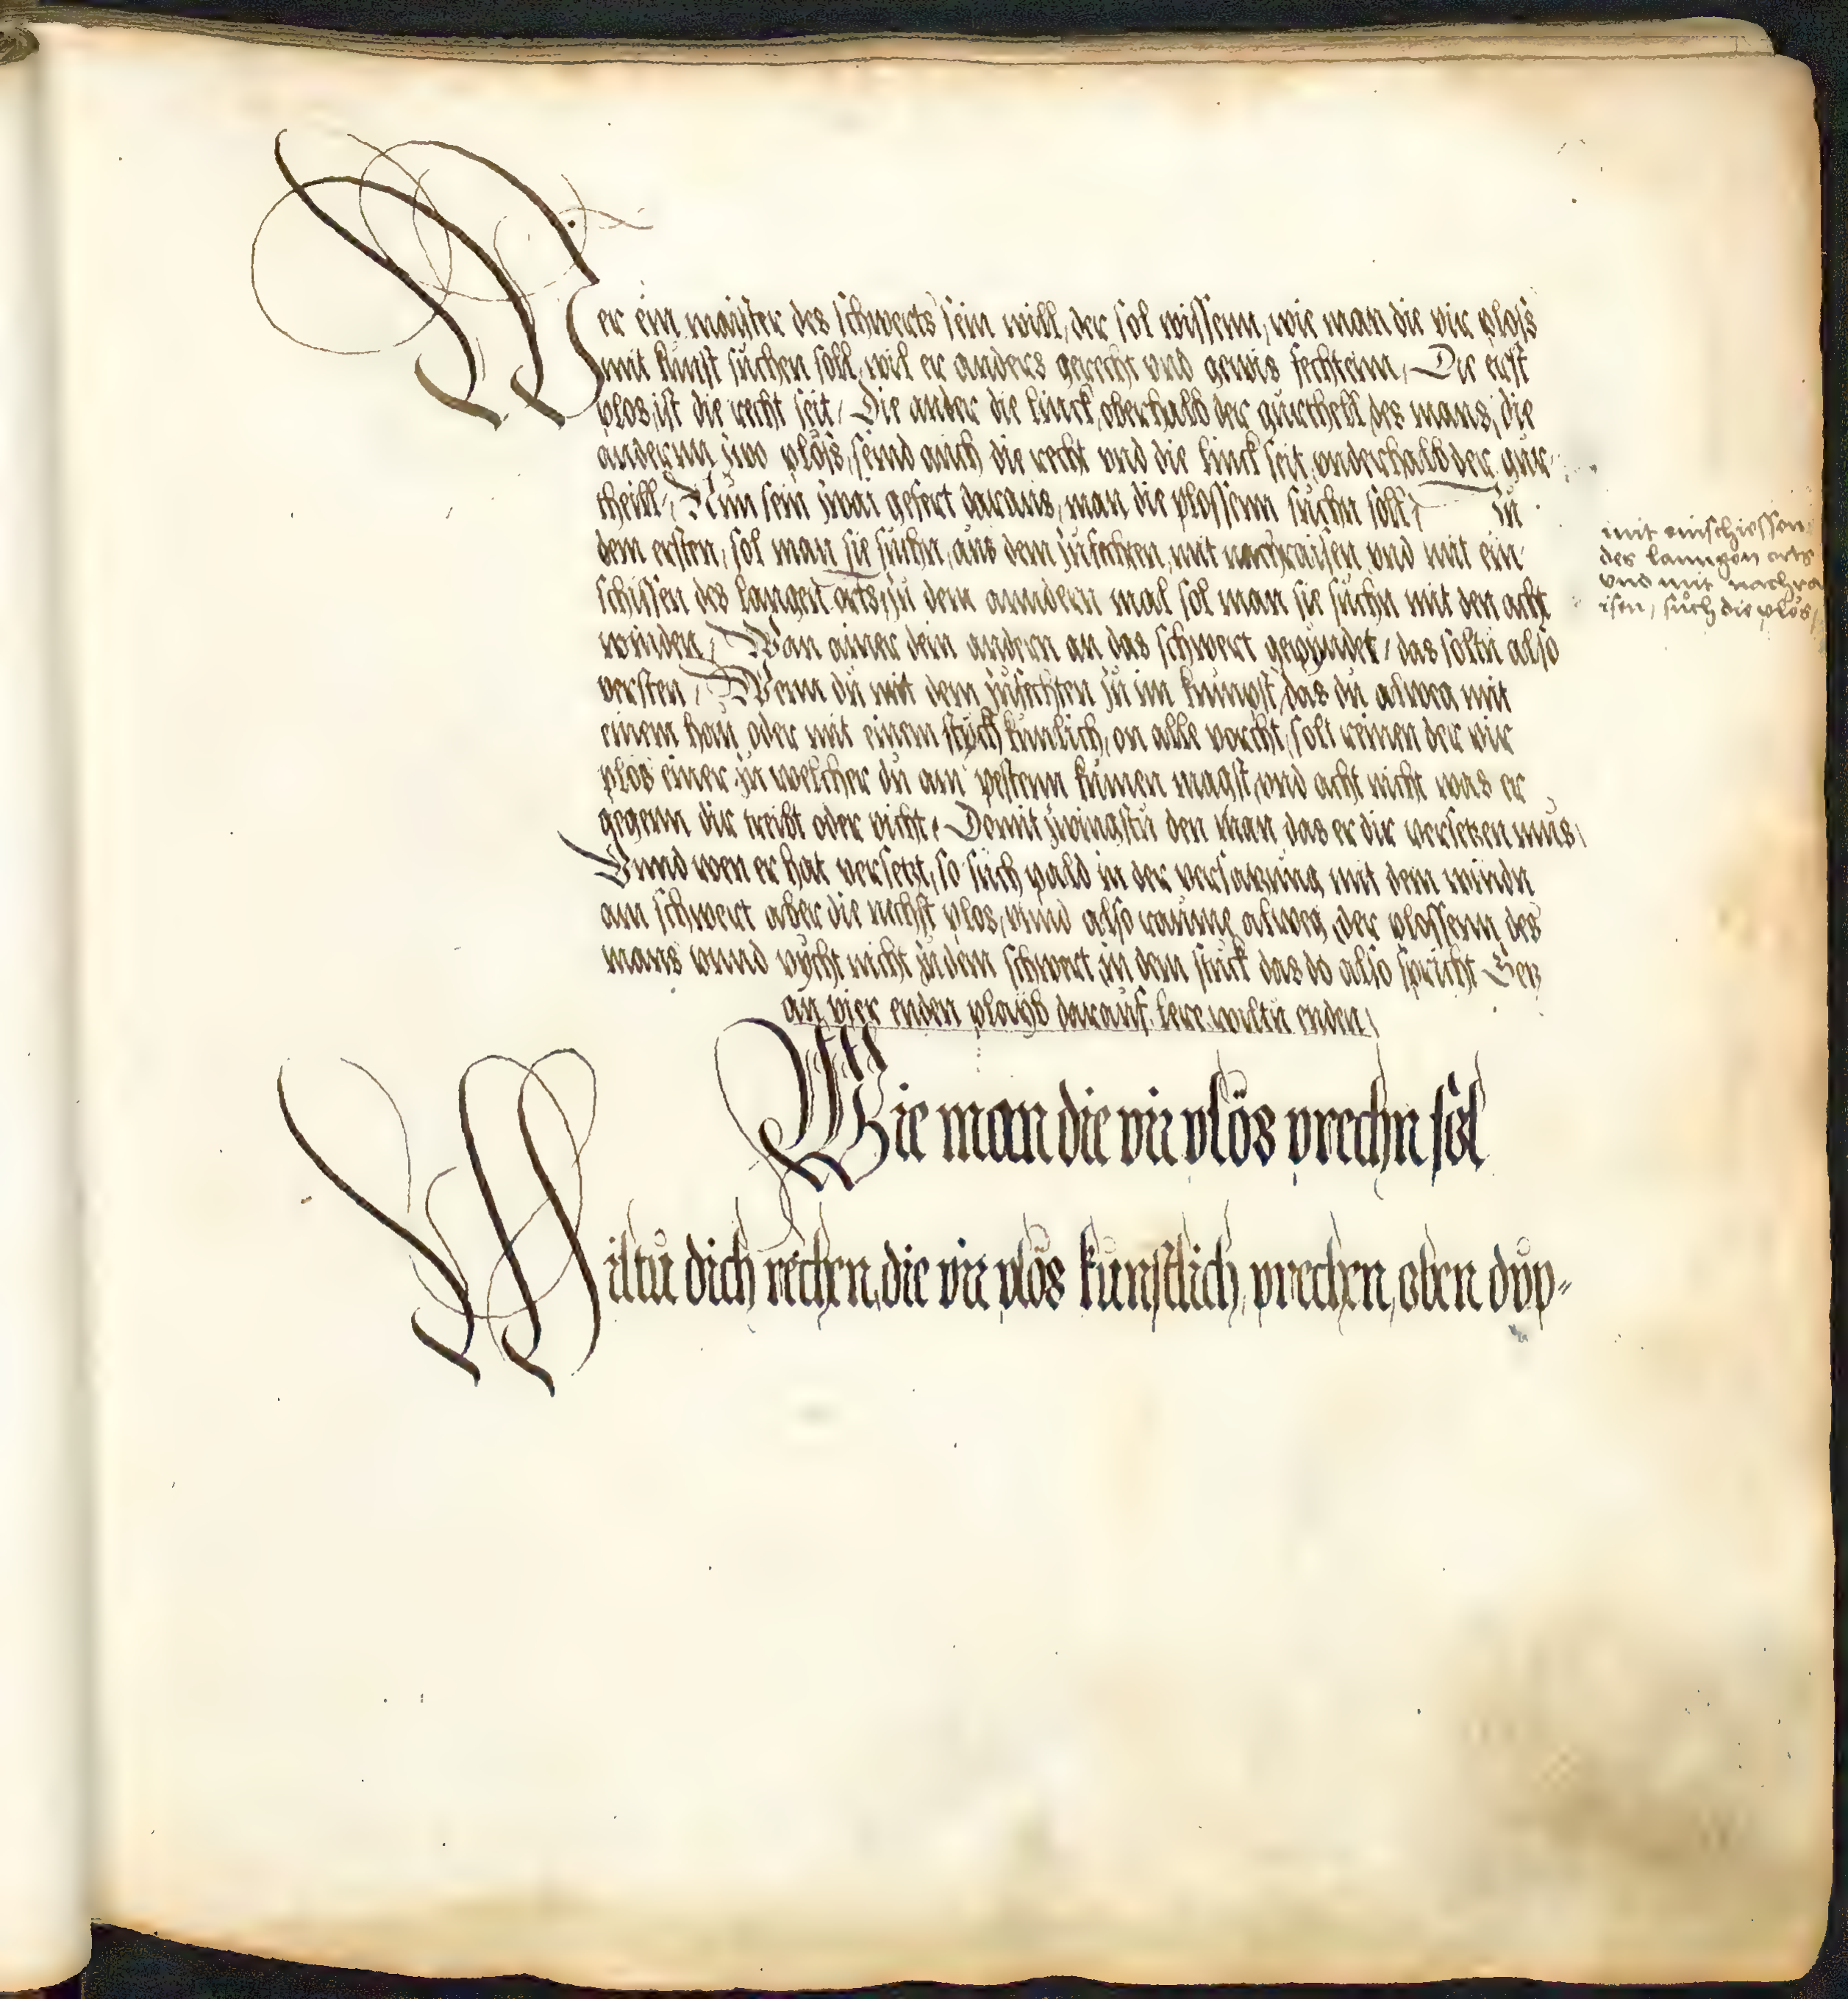 Wer ein maister des schwerts sein will, der sol wissenn, wie man die vir ploss
mit kunst suchen soll, wil er anders gerecht vnd gewis fechtenn, Die erst
plos, ist die recht seit, Die ander die linck, oberhalb der gurthell, des mans, die
andernn zwo plös, seind auch die recht vnd die linck seit, vnderhalb der gur
theill, Nun sein zwai gefert daraus, man die plossenn suchn söll, Zu
dem ersten, sol man sie suchn, aus dem zufechten, mit nachraisen, vnd mit ein
schissen des langen orts, zu dem anndern mal sol man sie suchn mit den acht
winden, Wan ainer dem andern an das schwert gepundet, das soltu also
versten, Wenn du mit dem zufechten zu im kumpst, das du alweg mit
einem hau, oder mit einem stuch kunlich, on alle vorcht, solt reinen der vir
plos einer zu welcher du am pestenn kumen magst, vnd acht nicht was er
gegenn dir treibt oder vicht, Domit zwingstu den man, das er dir versetzen mus,
Vnnd wen er hat versetzt, so such pald in der versatzung mit dem windn
am schwert aber die nechst plos, vnnd also raume alweg, der plossenn des
mans vnnd vycht nicht zu dem schwert, in dem stuck das do also spricht Setz
an vier enden playb darauf lere wiltu enden,
Wie man die vir plös prechn sol
Wiltu dich rechen, die vir plös kunstlich, prechen, oben dup-
mit einschiessen
des lanngen orts
vnd mit nachra
isen, such die plös,